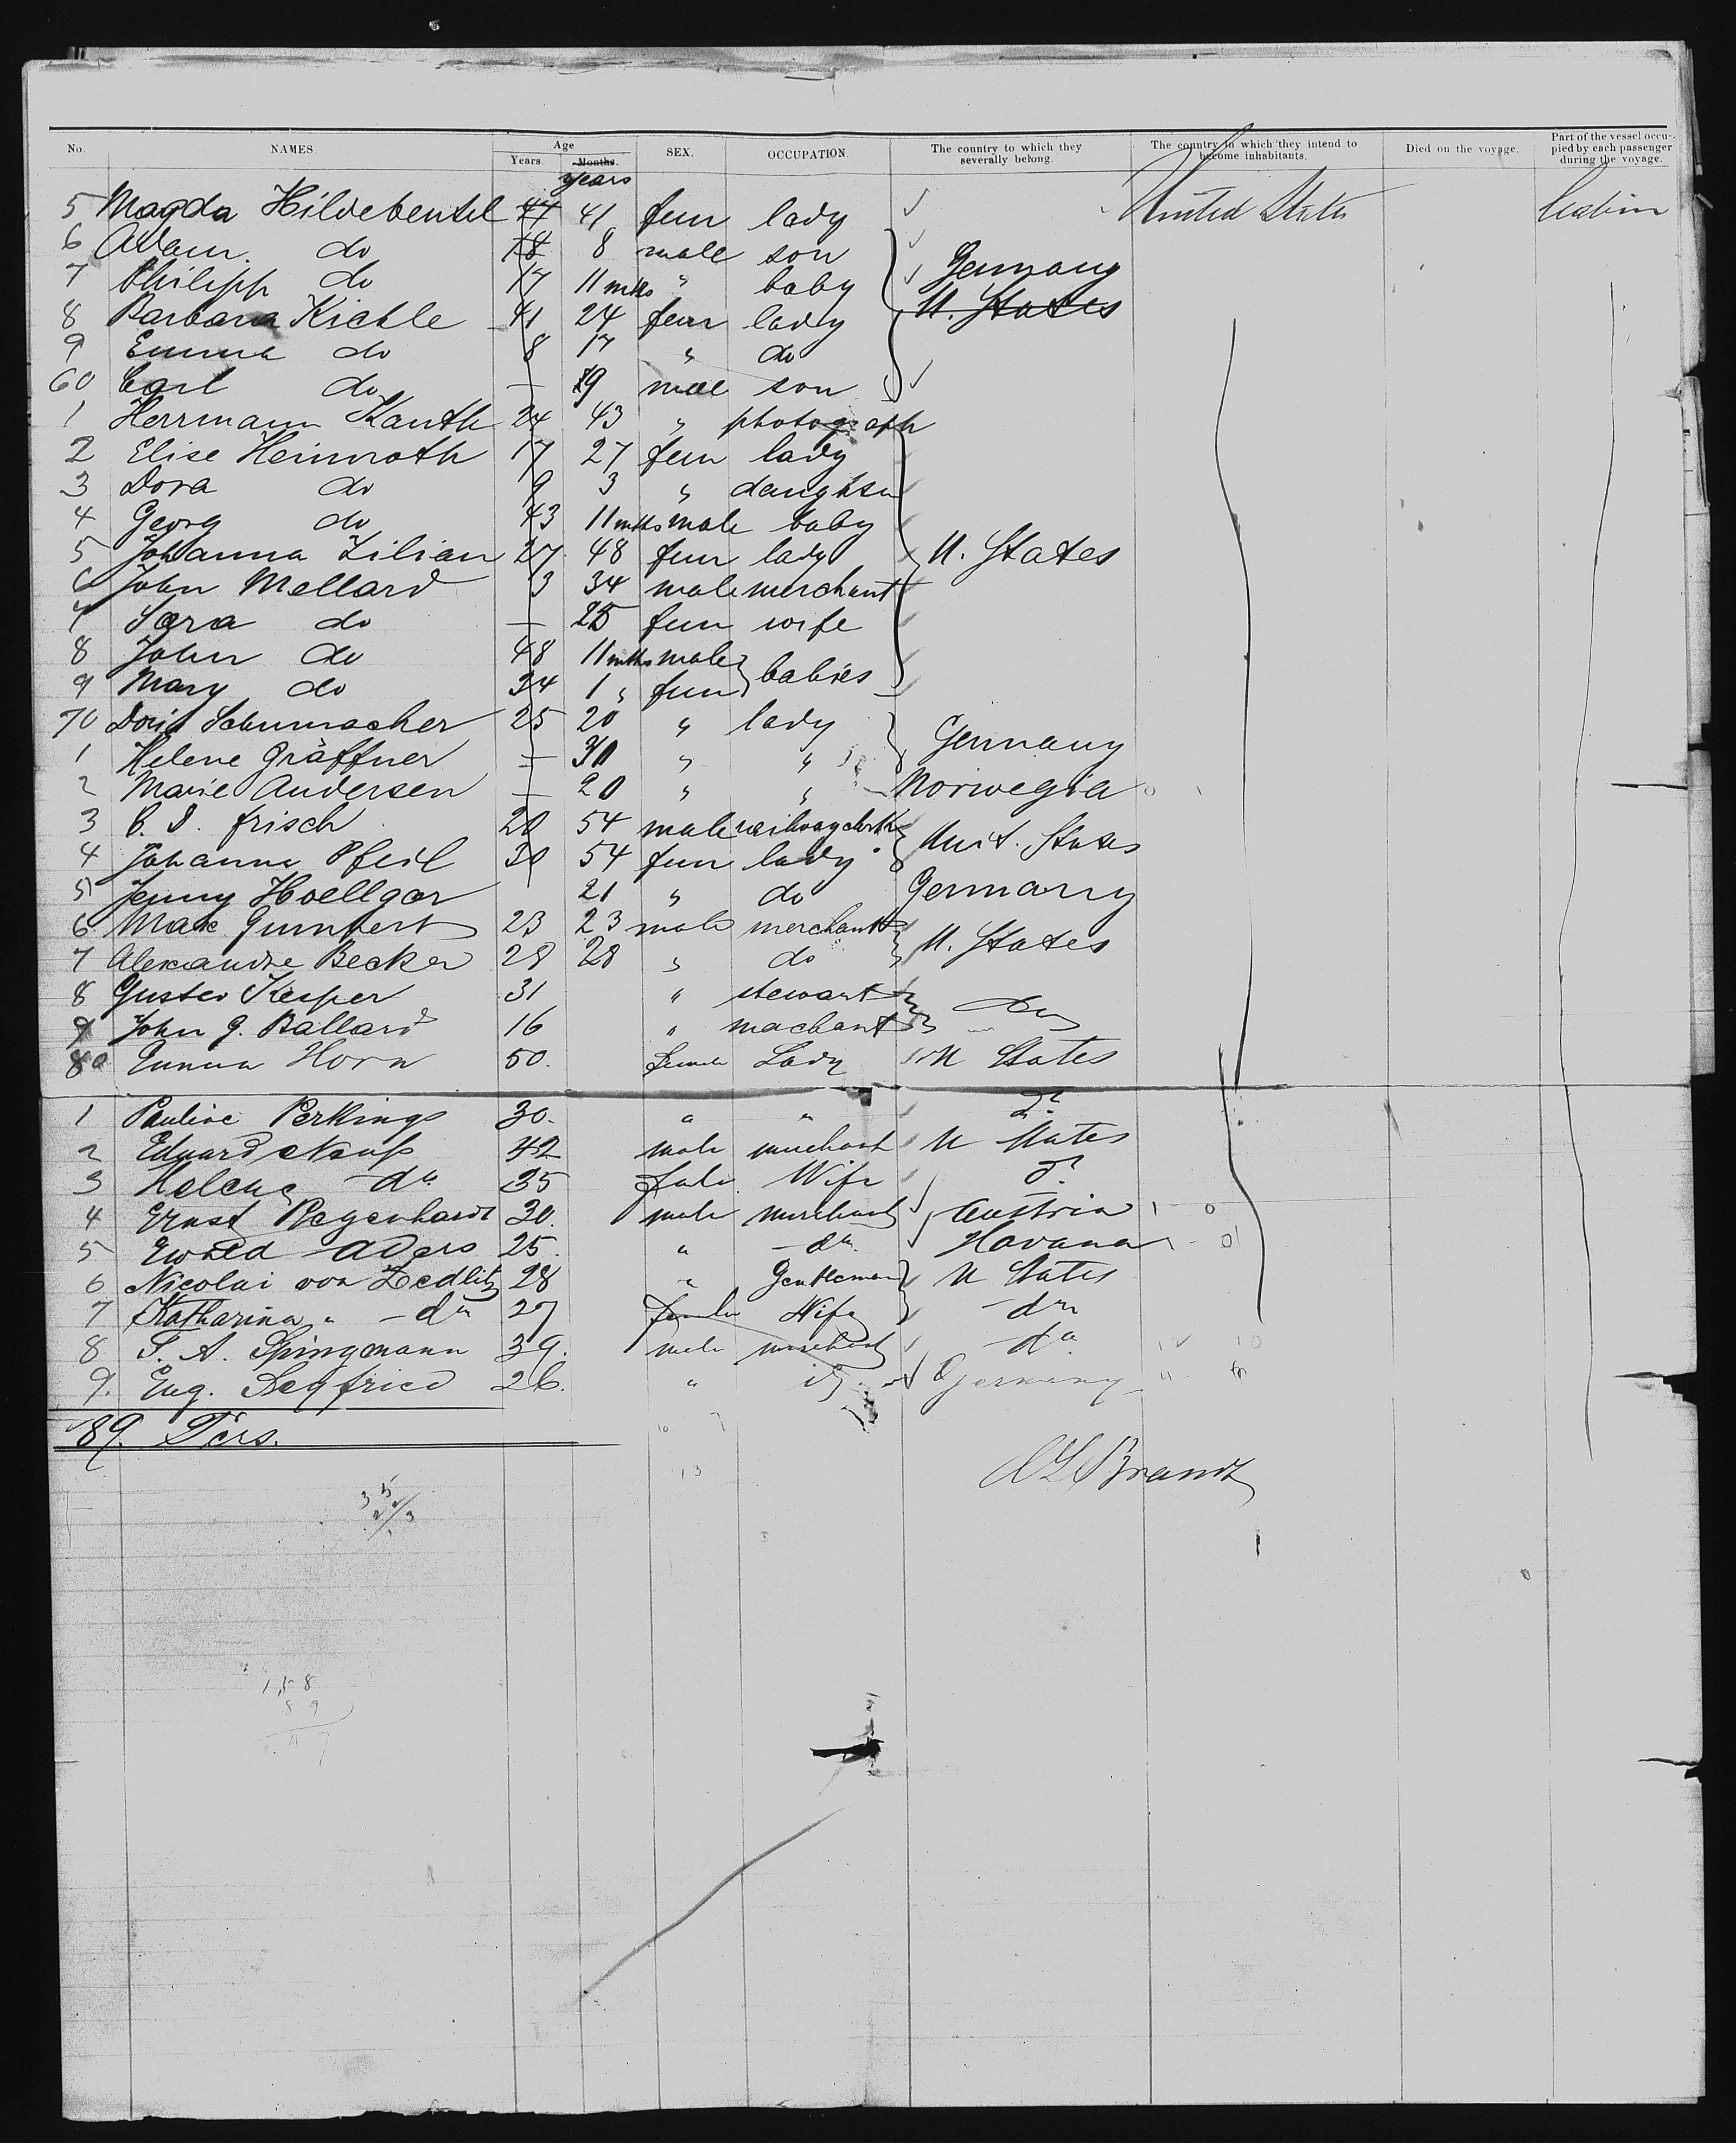 No. NAMES. Age SEX. OCCUPATION. The country to which they severally belong. The country to which they intend to become inhabitants. Died on the voyage. Part of the vessel occupied by each passenger during the voyage.
Years. Months.
years
5 Magda Hildebeutel 44 41 fem lady United States Cabin
6 Adam do 18 8 male son
7 Philipp do 17 11 mths " baby Germany
8 Barbara Kichle 41 24 fem lady U. States
9 Emma do 8 17 " do
60 Carl do — 9 male son
1 Herrmann Kanth 24 43 " photograph
2 Elise Heinroth 17 27 fem lady
3 Dora do 9 3 " daughter
4 Georg do 43 11 mths male baby
5 Johanna Zilian 27 48 fem lady U. States
6 John Mellard 3 34 male merchant
7 Sara do — 25 fem wife
8 John do 48 11 mths male babies
9 Mary do 34 1 " fem
70 Doris Schumacher 25 20 " lady
1 Helene Gräffner — 30 " " Germany
2 Marie Andersen — 20 " " Norwegia
3 C. I. frisch 20 54 male railwayclerk Unit. States
4 Johanna Pfeil 30 54 fem lady
5 Jenny Hoellgar 21 " do Germany
6 Max Gumpert 23 23 male merchant U. States
7 Alexandre Becker 28 28 " do
8 Gustav Kesper 31 " stewart do
9 John G. Ballard 16 " machant
80 Emma Horn 50. female Lady U States
1 Pauline Perkings 30. " " do
2 Eduard Neuß 42 male merchant U States
3 Helene do 35 fale Wife do
4 Ernst Regenhardt 30. male merchant Austria
5 Ewald Aders 25. " do Havana
6 Nicolai von Zedlitz 28 " Gentleman U States
7 Katharina " do 27 female Wife do
8 T. A. Spingmann 39. male merchant do
9. Eug. Segfried 26. " Germany
89. Pers.
Brandt
13
158
89